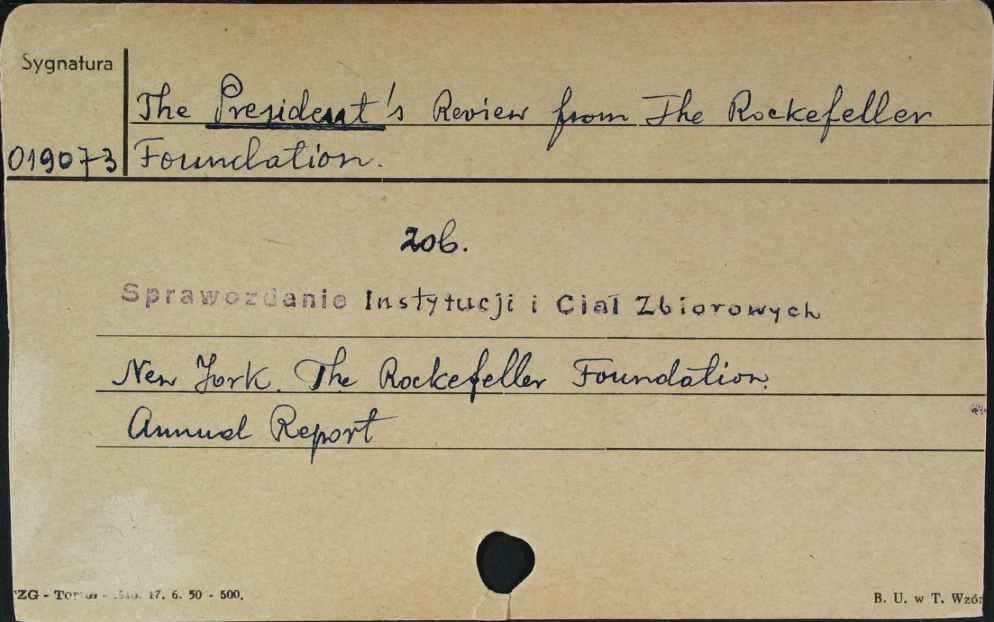 Sygnatura
The President's Review from The Rockefeller
019073 Foundation.
zob.
Sprawozdanie Instytucji i Ciał Zbiorowych
New York. The Rockefeller Foundation.
Annual Report
ZG - 17. 6. 50 - 500.
B. U. w T. Wzór